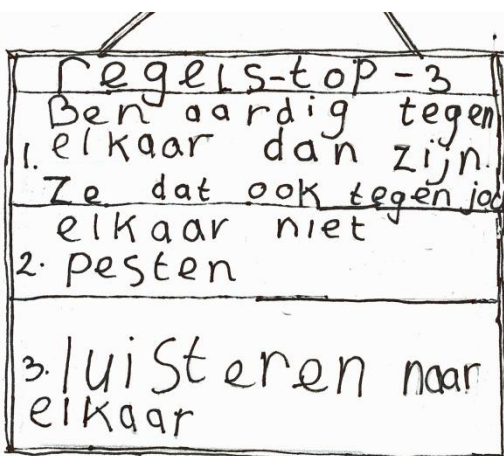 regels-top-3
Ben aardig tegen
1. elkaar dan zijn.
Ze dat ook tegen jou
elkaar niet
2. pesten
3. luisteren naar
elkaar